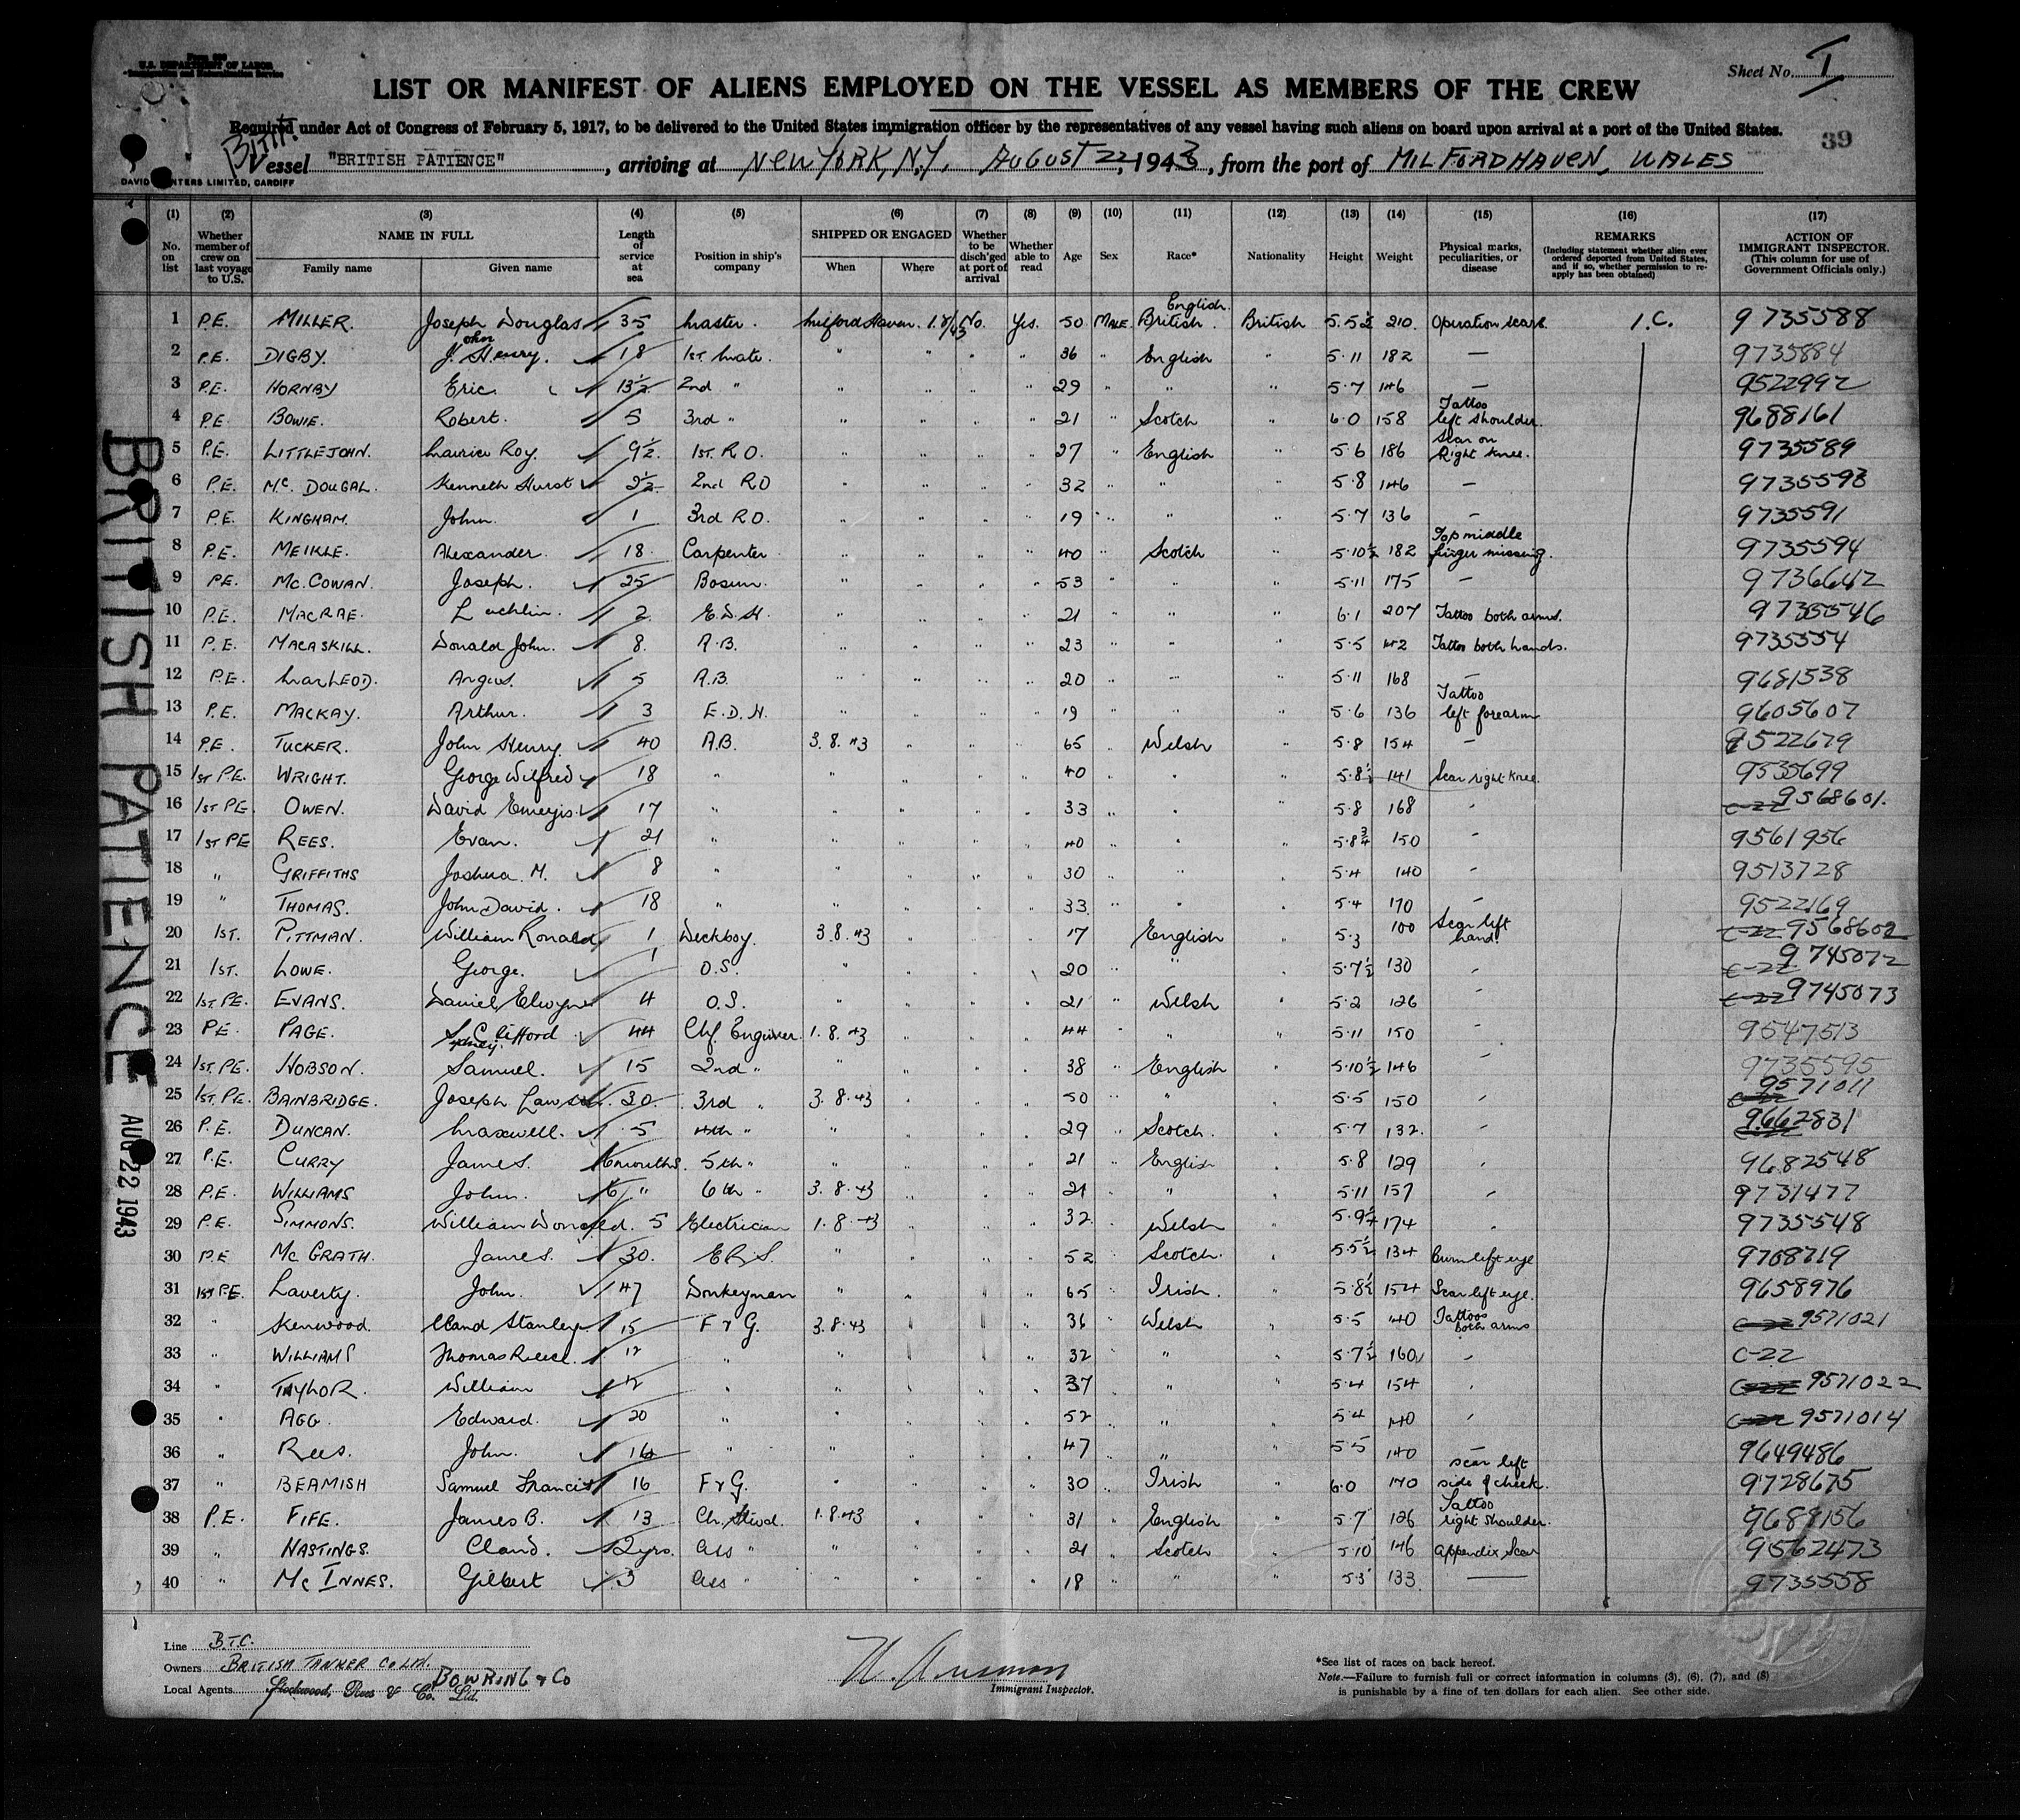 Form 680
U.S. DEPARTMENT OF LABOR
Immigration and Naturalization Service
Sheet No. I
LIST OR MANIFEST OF ALIENS EMPLOYED ON THE VESSEL AS MEMBERS OF THE CREW
Required under Act of Congress of February 5, 1917, to be delivered to the United States immigration officer by the representatives of any vessel having such aliens on board upon arrival at a port of the United States.
39
Vessel "BRITISH PATIENCE", arriving at NEW YORK, N.Y. AUGUST 22, 1943, from the port of MILFORDHAVEN, WALES
(1) (2) (3) (4) (5) (6) (7) (8) (9) (10) (11) (12) (13) (14) (15) (16) (17)
No. on list
Whether member of crew on last voyage to U.S.
NAME IN FULL
Family name Given name
Length of service at sea
Position in ship's company
SHIPPED OR ENGAGED
When Where
Whether to be disch'ged at port of arrival
Whether able to read
Age Sex Race* Nationality Height Weight
Physical marks, peculiarities, or disease
REMARKS
(Including statement whether alien ever ordered deported from United States, and if so, whether permission to reapply has been obtained)
ACTION OF IMMIGRANT INSPECTOR.
(This column for use of Government Officials only.)
1 P.E. MILLER. Joseph Douglas 35 Master. Milford Haven. 1.8/43 No. Yes. 50 MALE. English British. British 5.5½ 210. Operation scars. 1.C. 9735588
2 P.E. DIGBY. John Henry. 18 1st. Mate. " " " " 36 " English " 5.11 182 — 9735884
3 P.E. HORNBY Eric. 13½ 2nd " " " " " 29 " " " 5.7 146 — 9522992
4 P.E. BOWIE. Robert. 5 3rd " " " " " 21 " Scotch " 6.0 158 Tattoo left shoulder. 9688161
5 P.E. LITTLEJOHN. Maurice Roy. 9½ 1st. R.O. " " " " 27 " English " 5.6 186 Scar on Right knee. 9735589
6 P.E. Mc. DOUGAL. Kenneth Hurst 2½ 2nd RO " " " " 32 " " " 5.8 146 — 9735593
7 P.E. KINGHAM. John. 1 3rd RO. " " " " 19 " " " 5.7 136 — 9735591
8 P.E. MEIKLE. Alexander. 18. Carpenter " " " " 40 " Scotch " 5.10½ 182 Top middle finger missing. 9735594
9 P.E. Mc. COWAN. Joseph. 25 Bosun. " " " " 53 " " " 5.11 175 — 9736642
10 P.E. MACRAE. 2 E.D.H. " " " " 21 " " " 6.1 207 Tattoo both arms. 9735546
11 P.E. MACASKILL. Donald John. 8. A.B. " " " " 23 " " " 5.5 142 Tattoo both hands. 9735554
12 P.E. MacLEOD. Angus. 5 A.B. " " " " 20 " " " 5.11 168 — 9681538
13 P.E. MACKAY. Arthur. 3 E.D.H. " " " " 19 " " " 5.6 136 Tattoo left forearm 9605607
14 P.E. TUCKER. John Henry. 40 A.B. 3.8.43 " " " 65 " Welsh " 5.8 154 — 9522679
15 1ST P.E. WRIGHT. George Wilfred 18 " " " " " 40 " " " 5.8½ 141 Scar right knee. 9535699
16 1ST P.E. OWEN. David 17 " " " " " 33 " " " 5.8 168 - C-22 9568601.
17 1ST P.E. REES. Evan. 21 " " " " " 40 " " " 5.8¾ 150 - 9561956
18 " GRIFFITHS Joshua. M. 8 " " " " " 30 " " " 5.4 140 - 9513728
19 " THOMAS. John David. 18 " " " " " 33 " " " 5.4 170 - 9522169
20 1ST. PITTMAN. William Ronald 1 Deckboy. 3.8.43 " " " 17 " English " 5.3 100 Scar left hand. C-22 9568602
21 1ST. LOWE. George. 1 O.S. " " " " 20 " " " 5.7½ 130 - C-22 9745072
22 1ST P.E. EVANS. Daniel Elwyn 4 O.S. " " " " 21 " Welsh " 5.2 126 - C-22 9745073
23 P.E. PAGE. Sydney Clifford 44 Chf. Engineer. 1.8.43 " " " 44 " " " 5.11 150 - 9547513
24 1ST. P.E. HOBSON. Samuel. 15 2nd " " " " " 38 " English " 5.10½ 146 - 9735595
25 1ST. P.E. BAINBRIDGE. Joseph 30. 3rd " 3.8.43 " " " 50 " " " 5.5 150 - C-22 9571011
26 P.E. DUNCAN. Maxwell. 5 4th " " " " " 29 " Scotch. " 5.7 132. - 9662831
27 P.E. CURRY James. 6 months. 5th " " " " " 21 " English " 5.8 129 - 9682548
28 P.E. WILLIAMS John. 6 " 6th " 3.8.43 " " " 21 " " " 5.11 157 - 9731477
29 P.E. SIMMONS. William Donald. 5 Electrician 1.8.43 " " " 32 " Welsh " 174 - 9735548
30 P.E. Mc GRATH. James. 30. " " " " 52 " Scotch. " 5.5½ 134 Burn left eye 9708719
31 1st P.E. Laverty. John. 47 Donkeyman " " " " 65 " Irish. " 5.8½ 154 Scar left eye. 9658976
32 " Kenwood. Stanley. 15 F & G. 3.8.43 " " " 36 " Welsh " 5.5 140 Tattoos both arms C-22 9571021
33 " WILLIAMS Thomas Reece. 12 " " " " " 32 " " " 5.7½ 160 - C-22
34 " TAYLOR. William 12 " " " " " 37 " " " 5.4 154 - C-22 9571022
35 " AGG. Edward. 20 " " " " " 52 " " " 5.4 140 - C-22 9571014
36 " Rees. John. 16 " " " " " 47 " " " 5.5 140 — 9649486
37 " BEAMISH Samuel Francis 16 F & G. " " " " 30 " Irish " 6.0 170 scar left side of cheek. 9728675
38 P.E. FIFE. James B. 13 Ch. Stwd. 1.8.43 " " " 31 " English " 5.7 126 Tattoo right shoulder. 9689156
39 " HASTINGS. Claud. 2 yrs. Ass " " " " " 21 " Scotch " 5.10 146 appendix scar 9562473
40 " Mc INNES. Gilbert 3 Ass " " " " " 18 " " " 5.3 133 — 9735558
BRITISH PATIENCE
AUG 22 1943
Line B.T.C.
Owners BRITISH TANKER Co LTD.
Local Agents Stockwood, Rees & Co. Ltd. BOWRING & Co
Immigrant Inspector.
*See list of races on back hereof.
Note.—Failure to furnish full or correct information in columns (3), (6), (7), and (8)
is punishable by a fine of ten dollars for each alien. See other side.